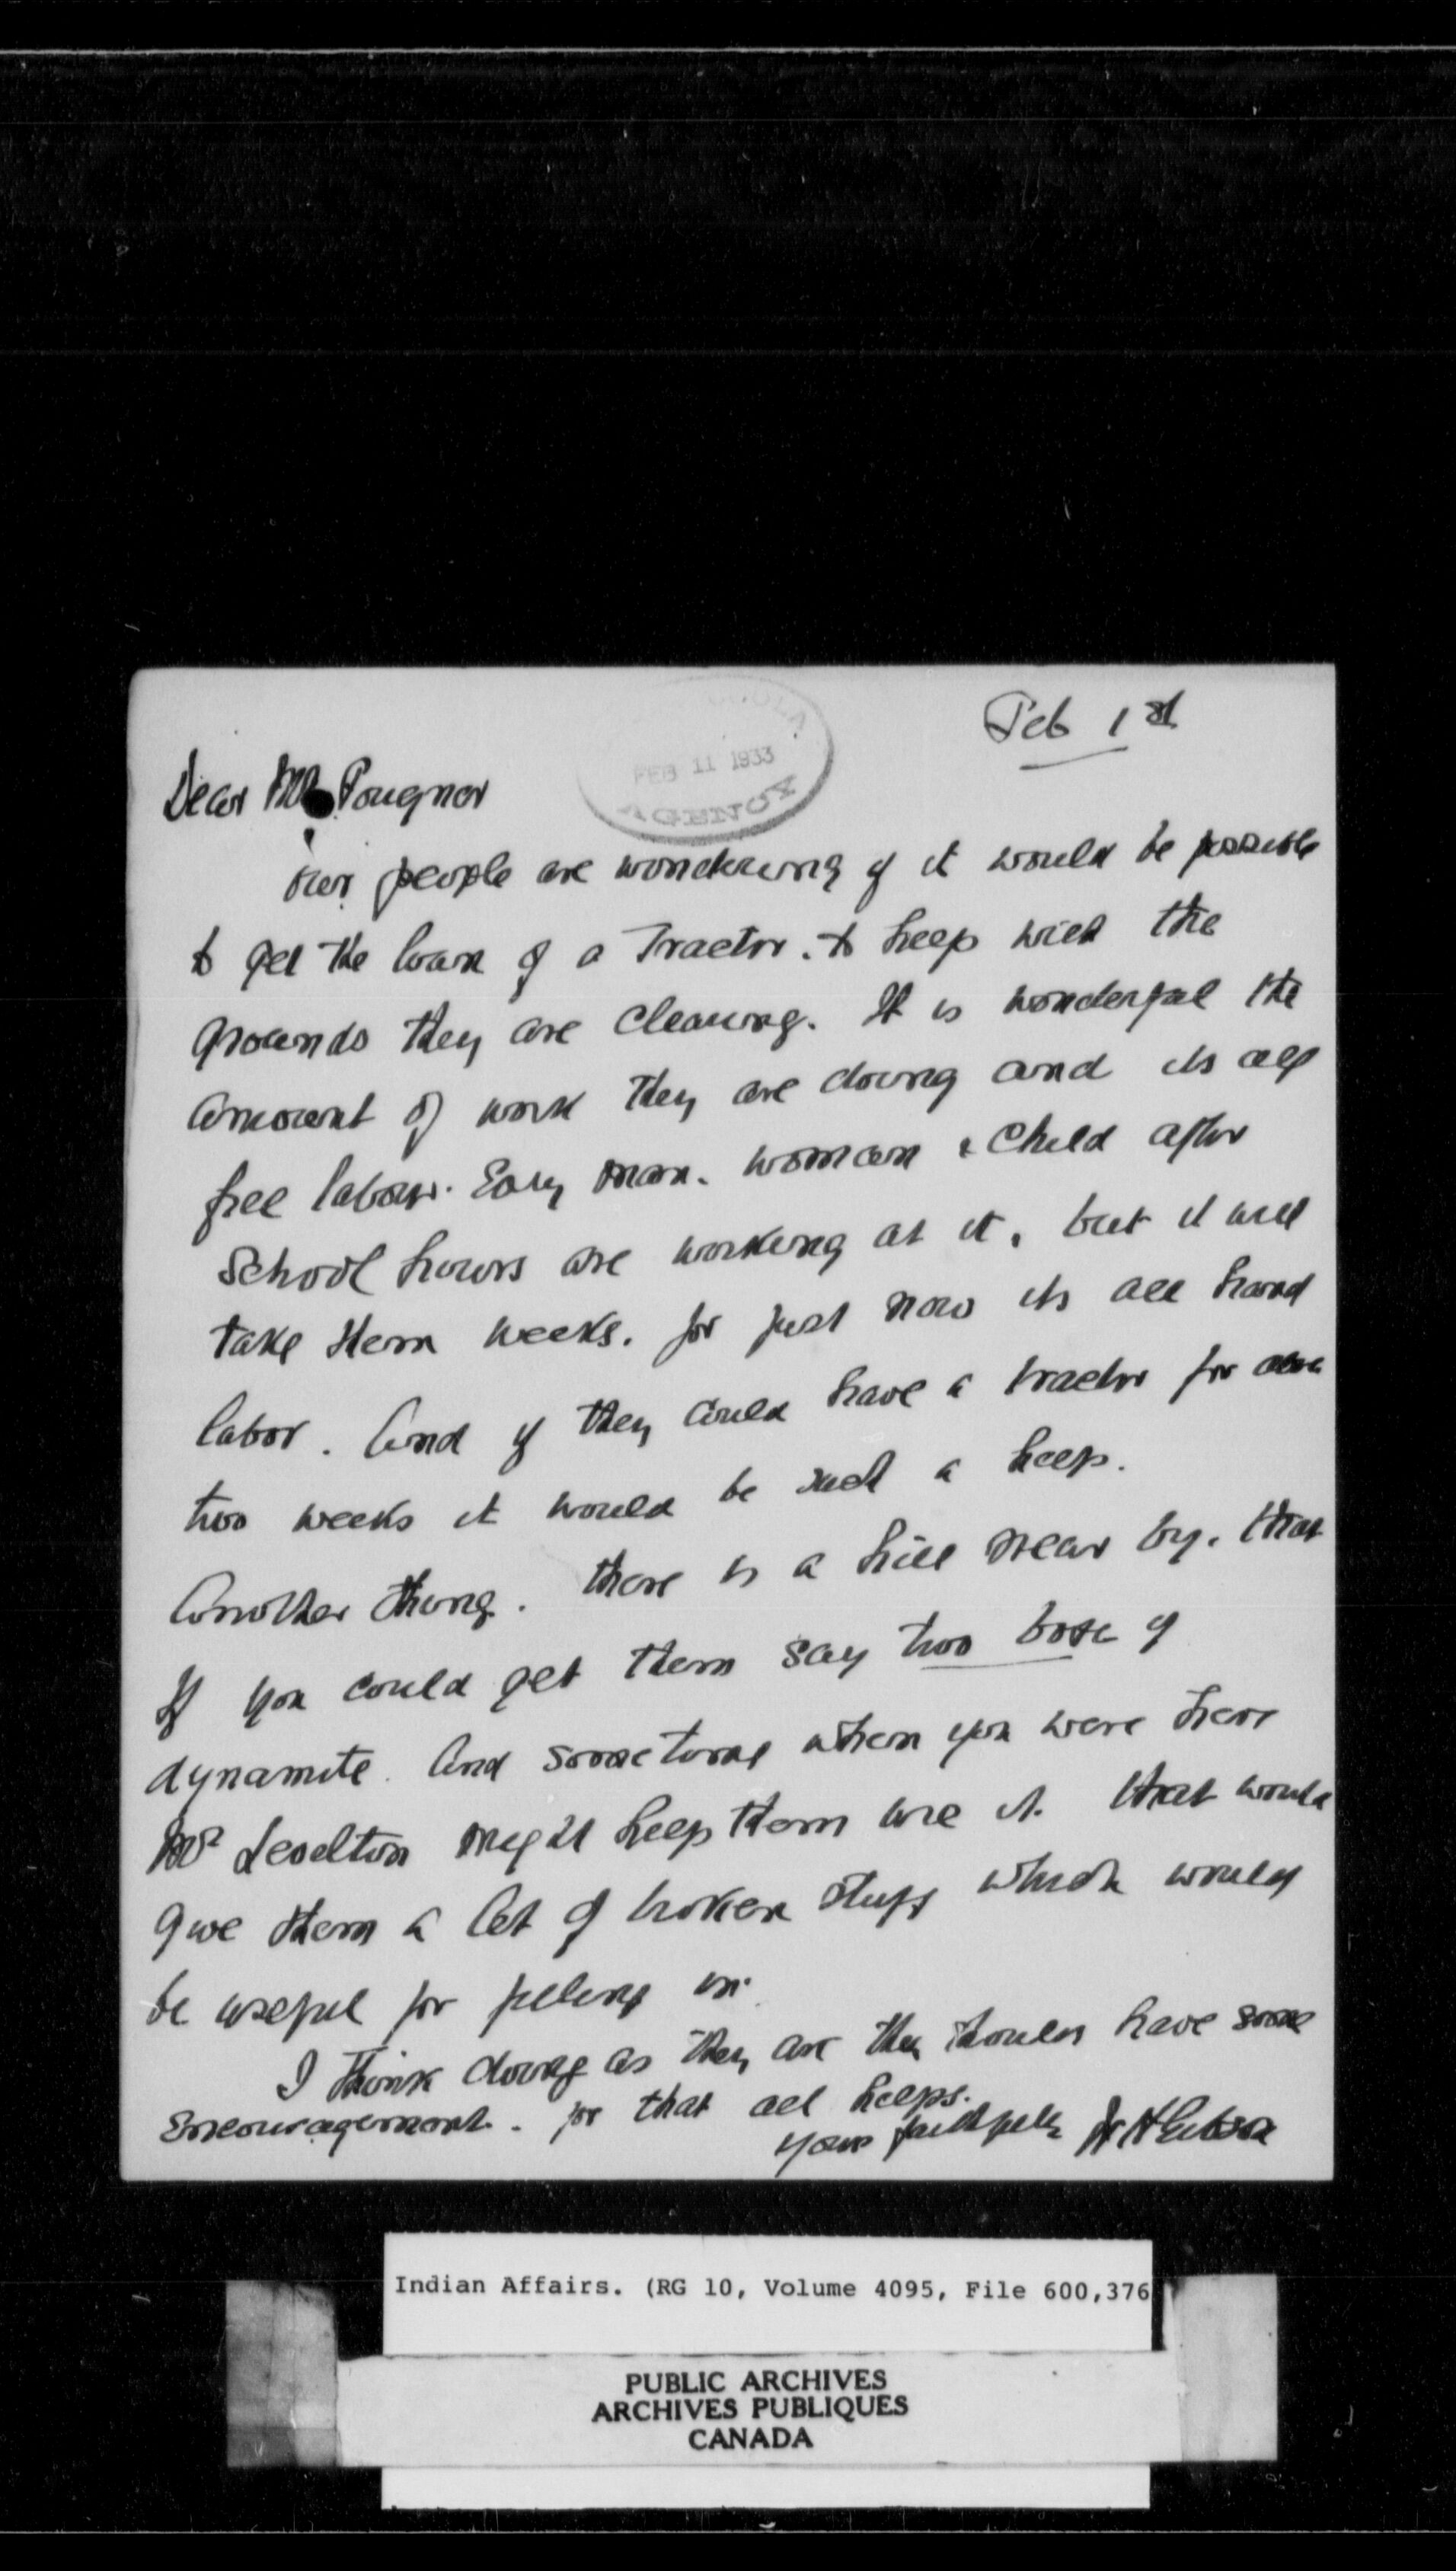 Feb 1st
FEB 11 1933
AGENCY
Dear Mr Pougner
Our people are wondering if it would be possible
to get the loan of a Tractor. to help with the
grounds they are clearing. It is wonderful the
amount of work they are doing and its all
free labour. Every man. woman & child after
school hours are working at it, but it will
take them weeks. for just now its all hand
labor. And if they could have a tractor for
two weeks it would be such a help.
Another thing. there is a hill near by. that
If you could get them say two boxes of
dynamite. And sometime when you were here
Mr Levelton might help them use it. that would
give them a lot of broken stuff which would
be useful for filling in.
I think doing as they are they should have some
Encouragement. for that all helps.
yours faithfully Gibson
Indian Affairs. (RG 10, Volume 4095, File 600,376
PUBLIC ARCHIVES
ARCHIVES PUBLIQUES
CANADA